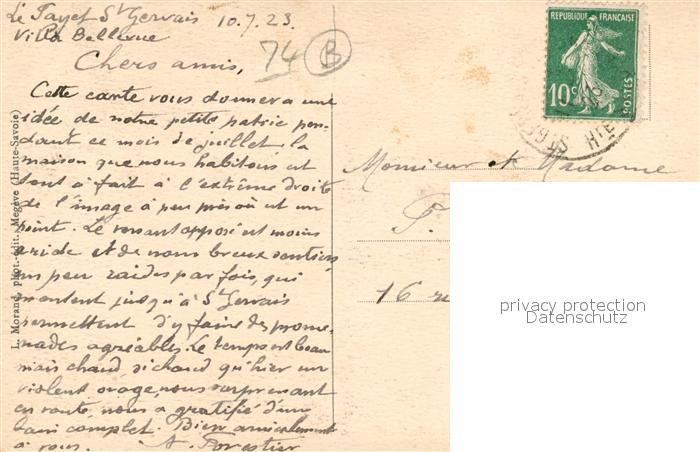 Le Fayet St Gervais 10.7.23
Villa Bellevue
74 B
Chers amis,
Cette carte vous donnera une
idée de notre petite patrie pen-
dant ce mois de juillet. la
maison que nous habitons est
tout à fait à l'extrême droite
de l'image à peu près où est un
point. Le versant opposé est moins
aride et de nombreux sentiers,
un peu raides par fois, qui
montent jusqu'à St Gervais
permettent d'y faire des prome-
nades agréables. Le temps est beau
mais chaud, si chaud qu'hier un
violent orage, nous surprenant
en route, nous a gratifié d'un
bain complet. Bien amicalement
à vous. A. Forestier
L. Morand, phot.-édit., Megève (Haute-Savoie)
REPUBLIQUE FRANÇAISE
10c
POSTES
Monsieur et Madame
16
privacy protection
Datenschutz